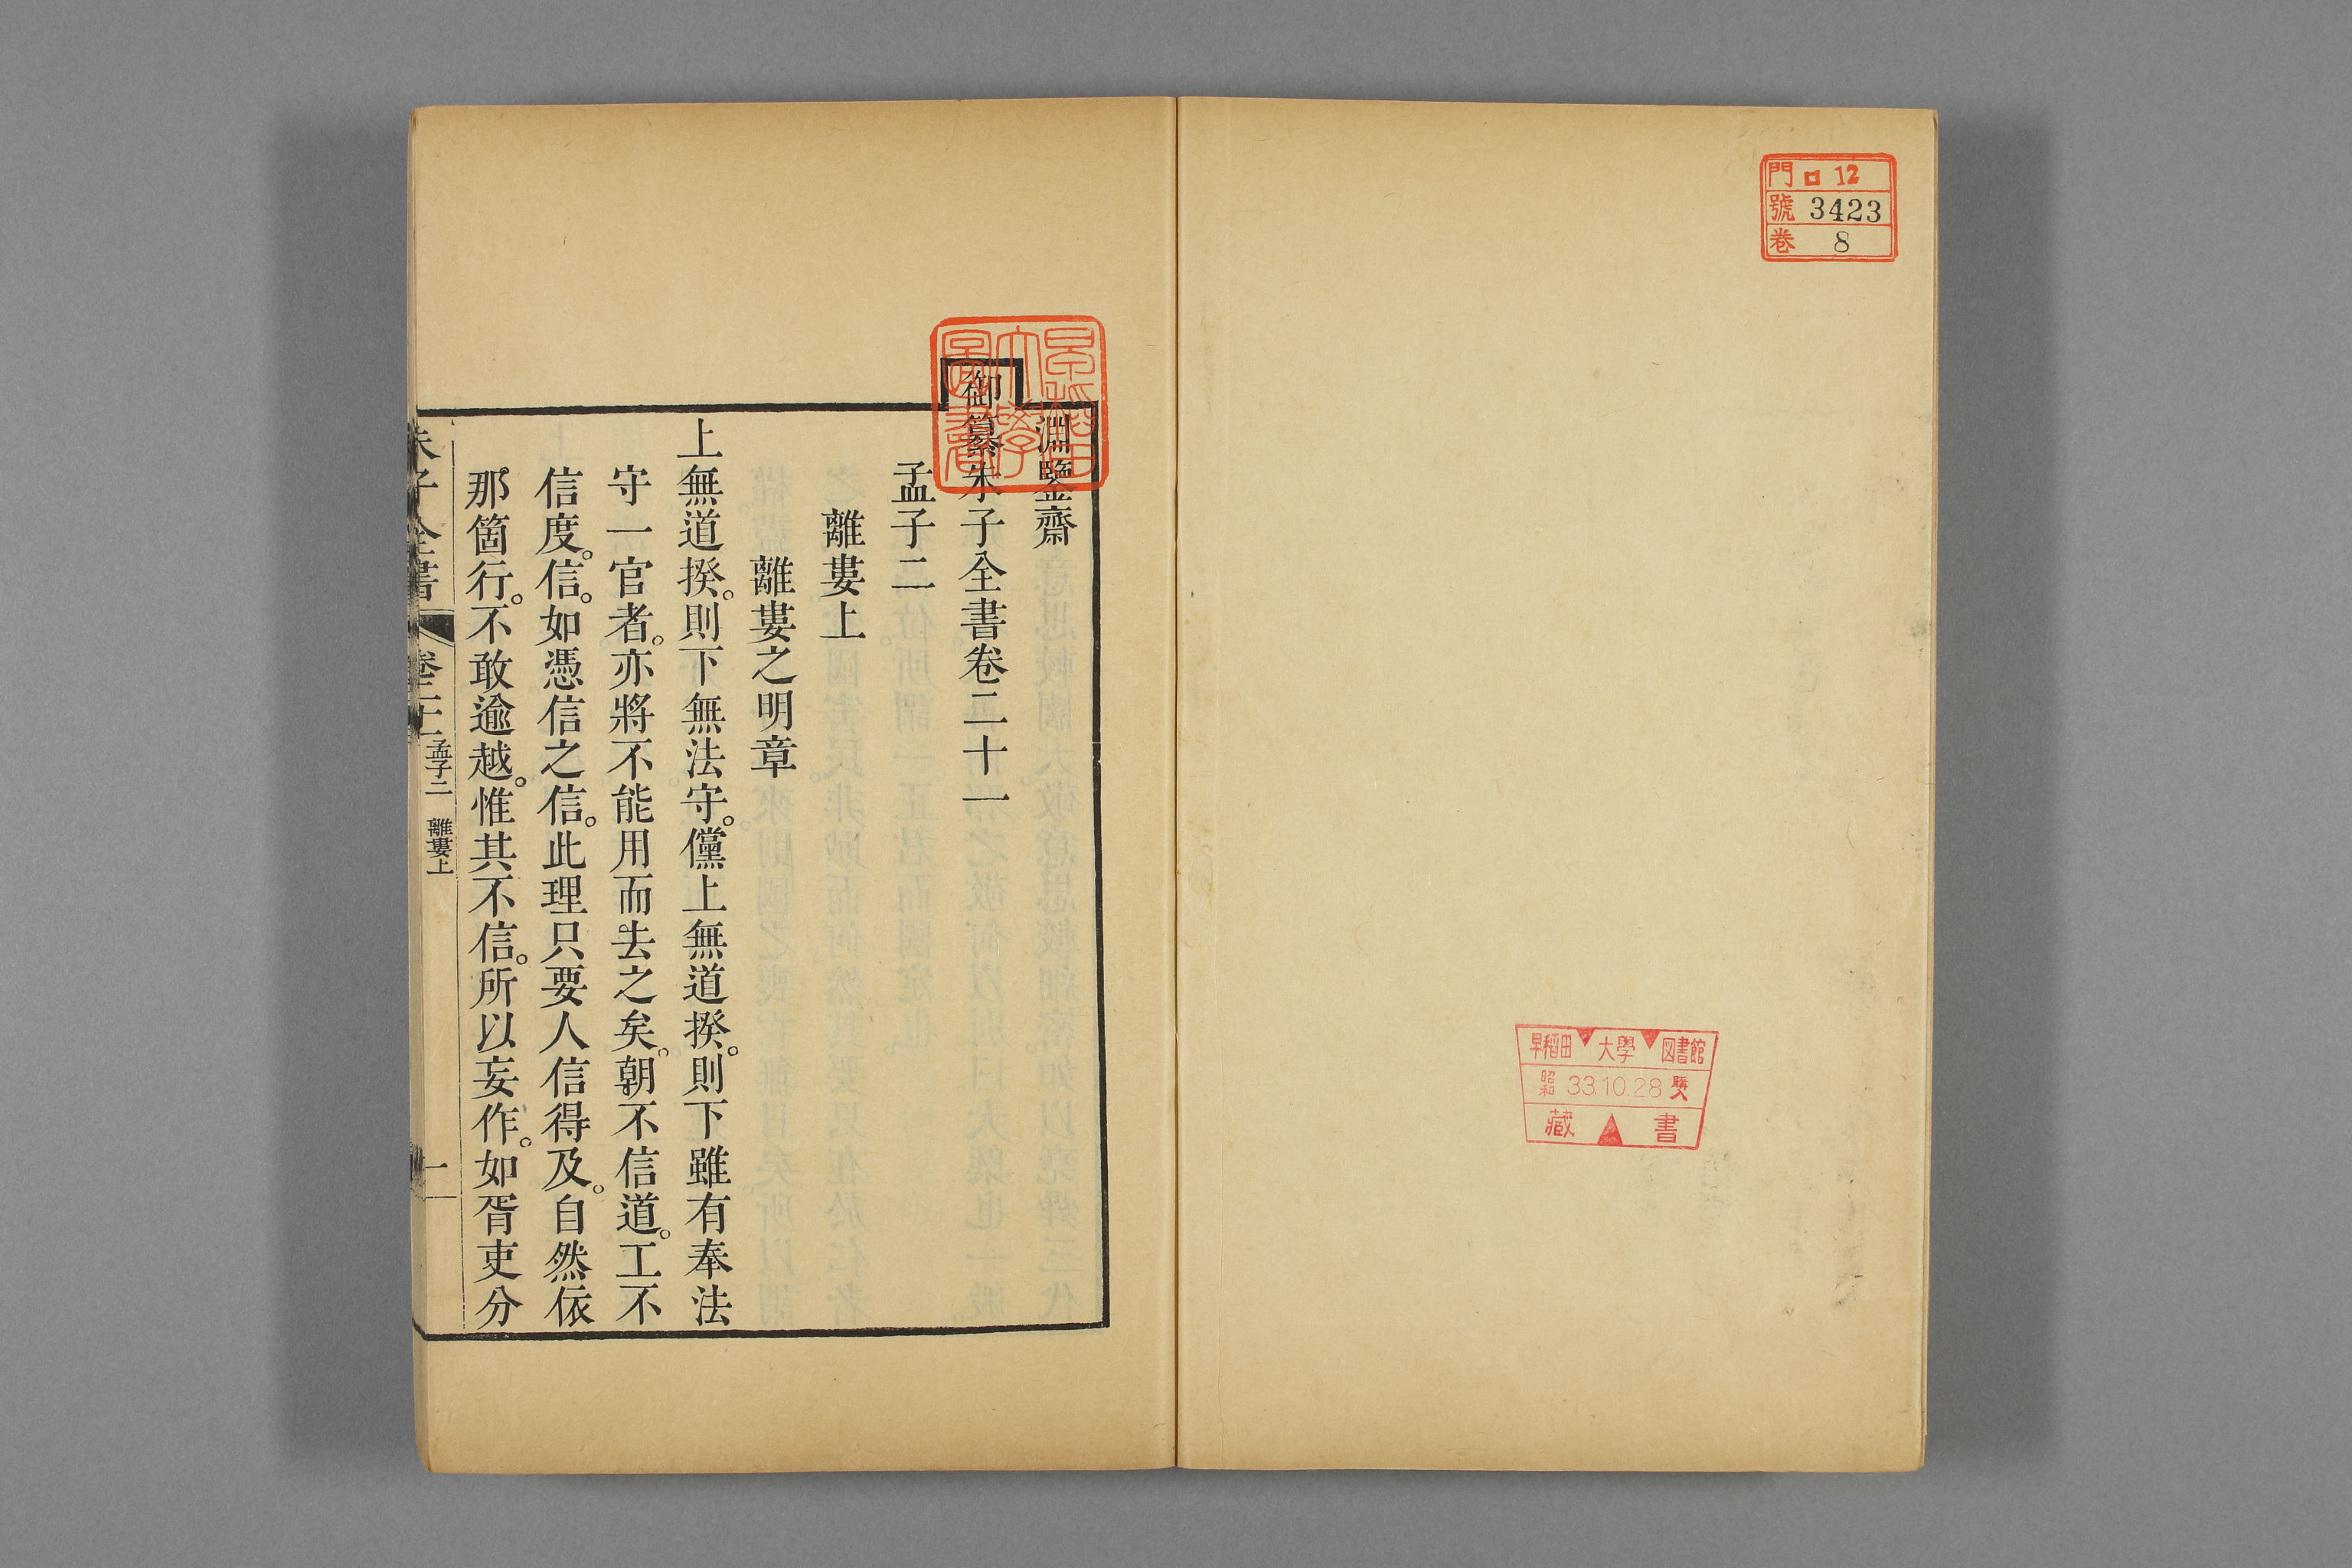 門 ロ 12
號 3423
卷 8
早稻田 大學 図書館
昭和 33.10.28 購入
藏 書
早稲田
大學
圖書
淵鑒齋
御纂朱子全書卷二十一
孟子二
離婁上
離婁之明章
上無道揆。則下無法守。儻上無道揆。則下雖有奉法
守一官者。亦將不能用而去之矣。朝不信道。工不
信度。信。如憑信之信。此理只要人信得及。自然依
那箇行。不敢逾越。惟其不信。所以妄作。如胥吏分
朱子全書 卷二十一 孟子二 離婁上 一